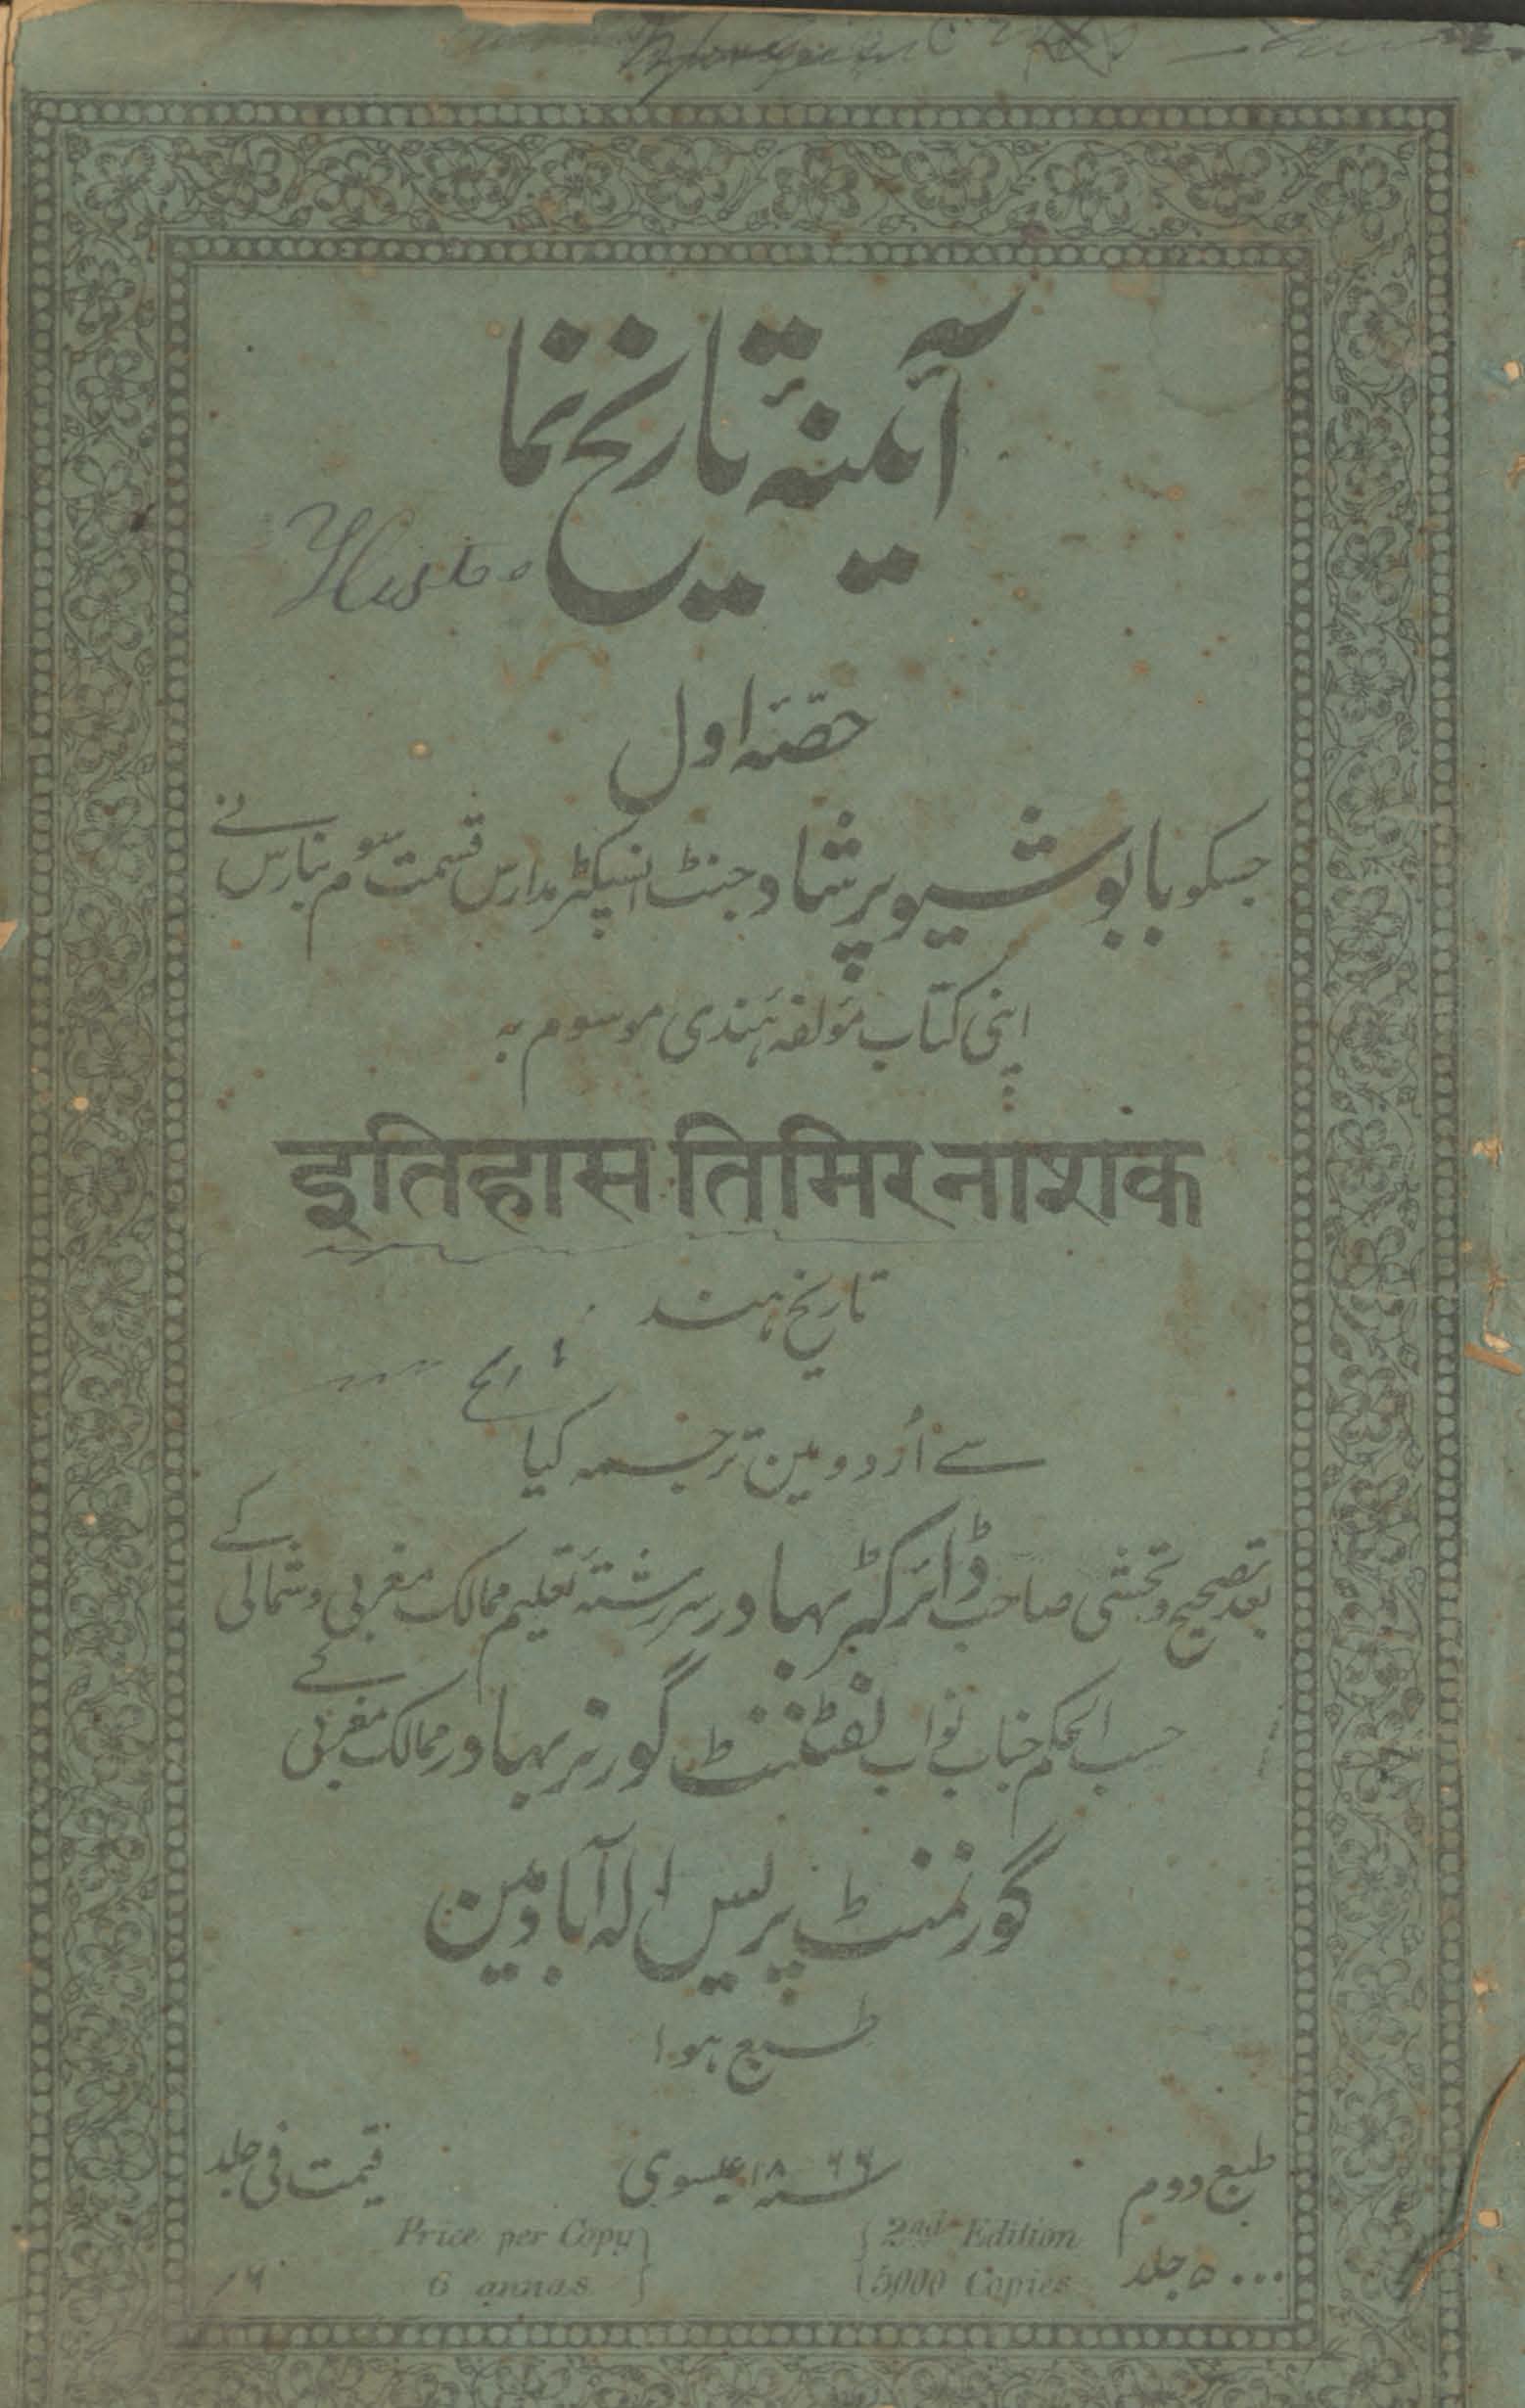 آئینۂ تاریخ نما
حصّہ اول
جسکو بابو شیو پرشاد جنٹ انسپکٹر مدارس قسمت سوم بنارس نے
اپنی کتاب مؤلفہ ہندی موسوم بہ
इतिहास तिमिरनाशक
تاریخ ہند
سے اُردو مین ترجمہ کیا
بعد تصحیح و تحشی صاحب ڈائرکٹر بہادر سررشتۂ تعلیم ممالک مغربی و شمالی کے
حسب الحکم جناب نواب لفٹننٹ گورنر بہادر ممالک مغربی کے
گورنمنٹ پریس الہ آباد مین
طبع ہوا
طبع دوم
سنہ ۱۸۶۶ عیسوی
قیمت فی جلد
2nd Edition
Price per Copy
۵۰۰۰ جلد
5000 Copies
6 annas
/۶